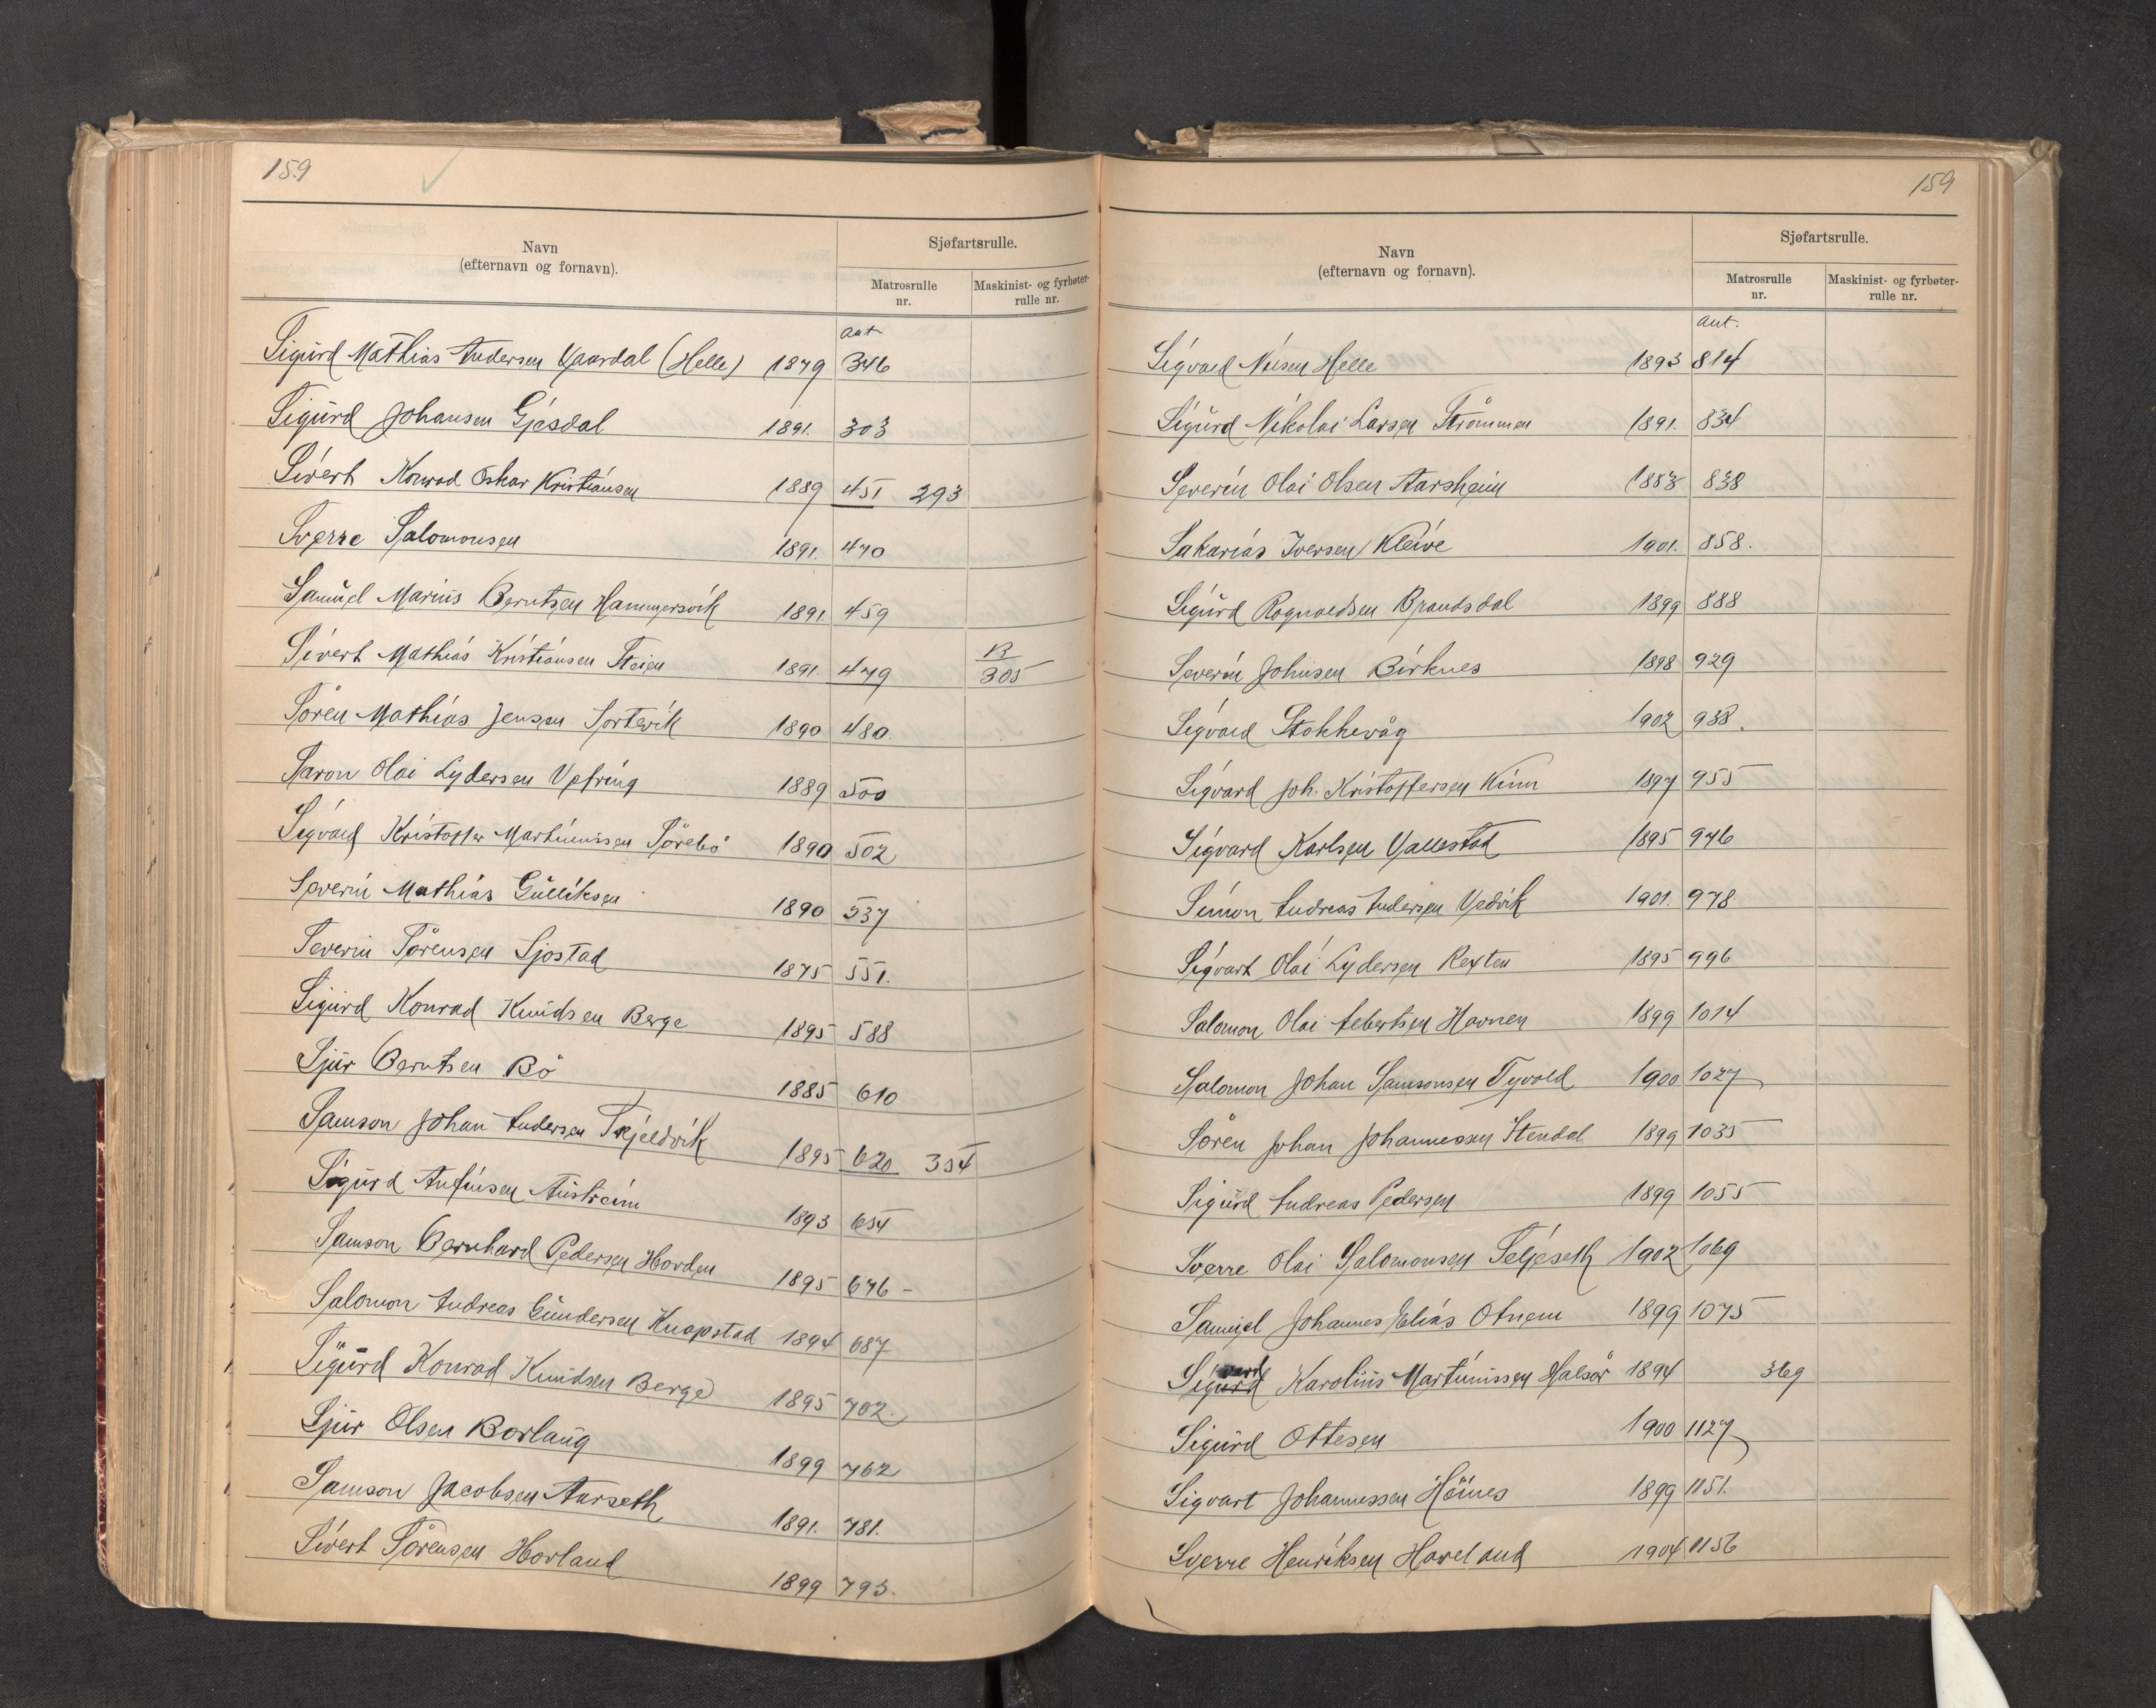 159
Navn
(efternavn og fornavn).
Sjøfartsrulle.
Matrosrulle
nr.
Maskinist- og fyrbøter-
rulle nr.
ant.
Sigurd Mathias Andersen Vaardal (Helle) 1879 346
Sigurd Johansen Gjesdal 1891. 303
Sivert Konrad Oskar Kristiansen 1889 451 293
Sverre Salomonsen 1891. 470
Samuel Marius Berntsen Hammersvik 1891. 459
Sivert Mathias Kristiansen Steien 1891. 479 B/305
Sören Mathias Jensen Sortevik 1890 480.
Saron Olai Lydersen Vefring 1889 500
Sigvald Kristoffer Martinussen Sörebö 1890 502
Severin Mathias Gulliksen 1890 537
Severin Sörensen Sjøstad 1875 551.
Sigurd Konrad Knudsen Berge 1895 588
Sjur Berntsen Bö 1885 610
Samson Johan Andersen Skjeldvik 1895 620 354
Sigurd Anfinsen Austreim 1893 654
Samson Bernhard Pedersen Horden 1895 676 -
Salomon Andreas Gundersen Knapstad 1894 687
Sigurd Konrad Knudsen Berge 1895 702.
Sjur Olsen Borlaug 1899 762
Samson Jacobsen Aarseth 1891. 781.
Sivert Sörensen Hovland 1899 793.
159
Navn
(efternavn og fornavn).
Sjøfartsrulle.
Matrosrulle
nr.
Maskinist- og fyrbøter-
rulle nr.
ant.
Sigvald Nilsen Helle 1893 814
Sigurd Nikolai Larsen Strömmen 1891. 834
Severin Olai Olsen Aarsheim 1883 838
Sakarias Iversen Kleive 1901. 858.
Sigurd Ragnvaldsen Brandsdal 1899 888
Severin Johnsen Birknes 1898 929
Sigvald Stokkevåg 1902 938.
Sigvard Joh. Kristoffersen Kinn 1897 955
Sigvard Karlsen Vallestad 1895 976
Simon Andreas Andersen Vedvik 1901. 978.
Sigvart Olai Lydersen Rexten 1895 996
Salomon Olai Aebertsen Havnen 1899 1014
Salomon Johan Samsonsen Tyvold 1900 1027
Sören Johan Johannessen Stendal 1899 1035
Sigurd Andreas Pedersen 1899 1055
Sverre Olai Salomonsen Seljeseth 1902 1069
Samuel Johannes Elias Otnem 1899 1075
Sigvard Karolius Martinussen Halsör 1894 369
Sigurd Ottesen 1900 1127
Sigvart Johannessen Höines 1899 1151.
Sverre Henriksen Haveland 1904 1156